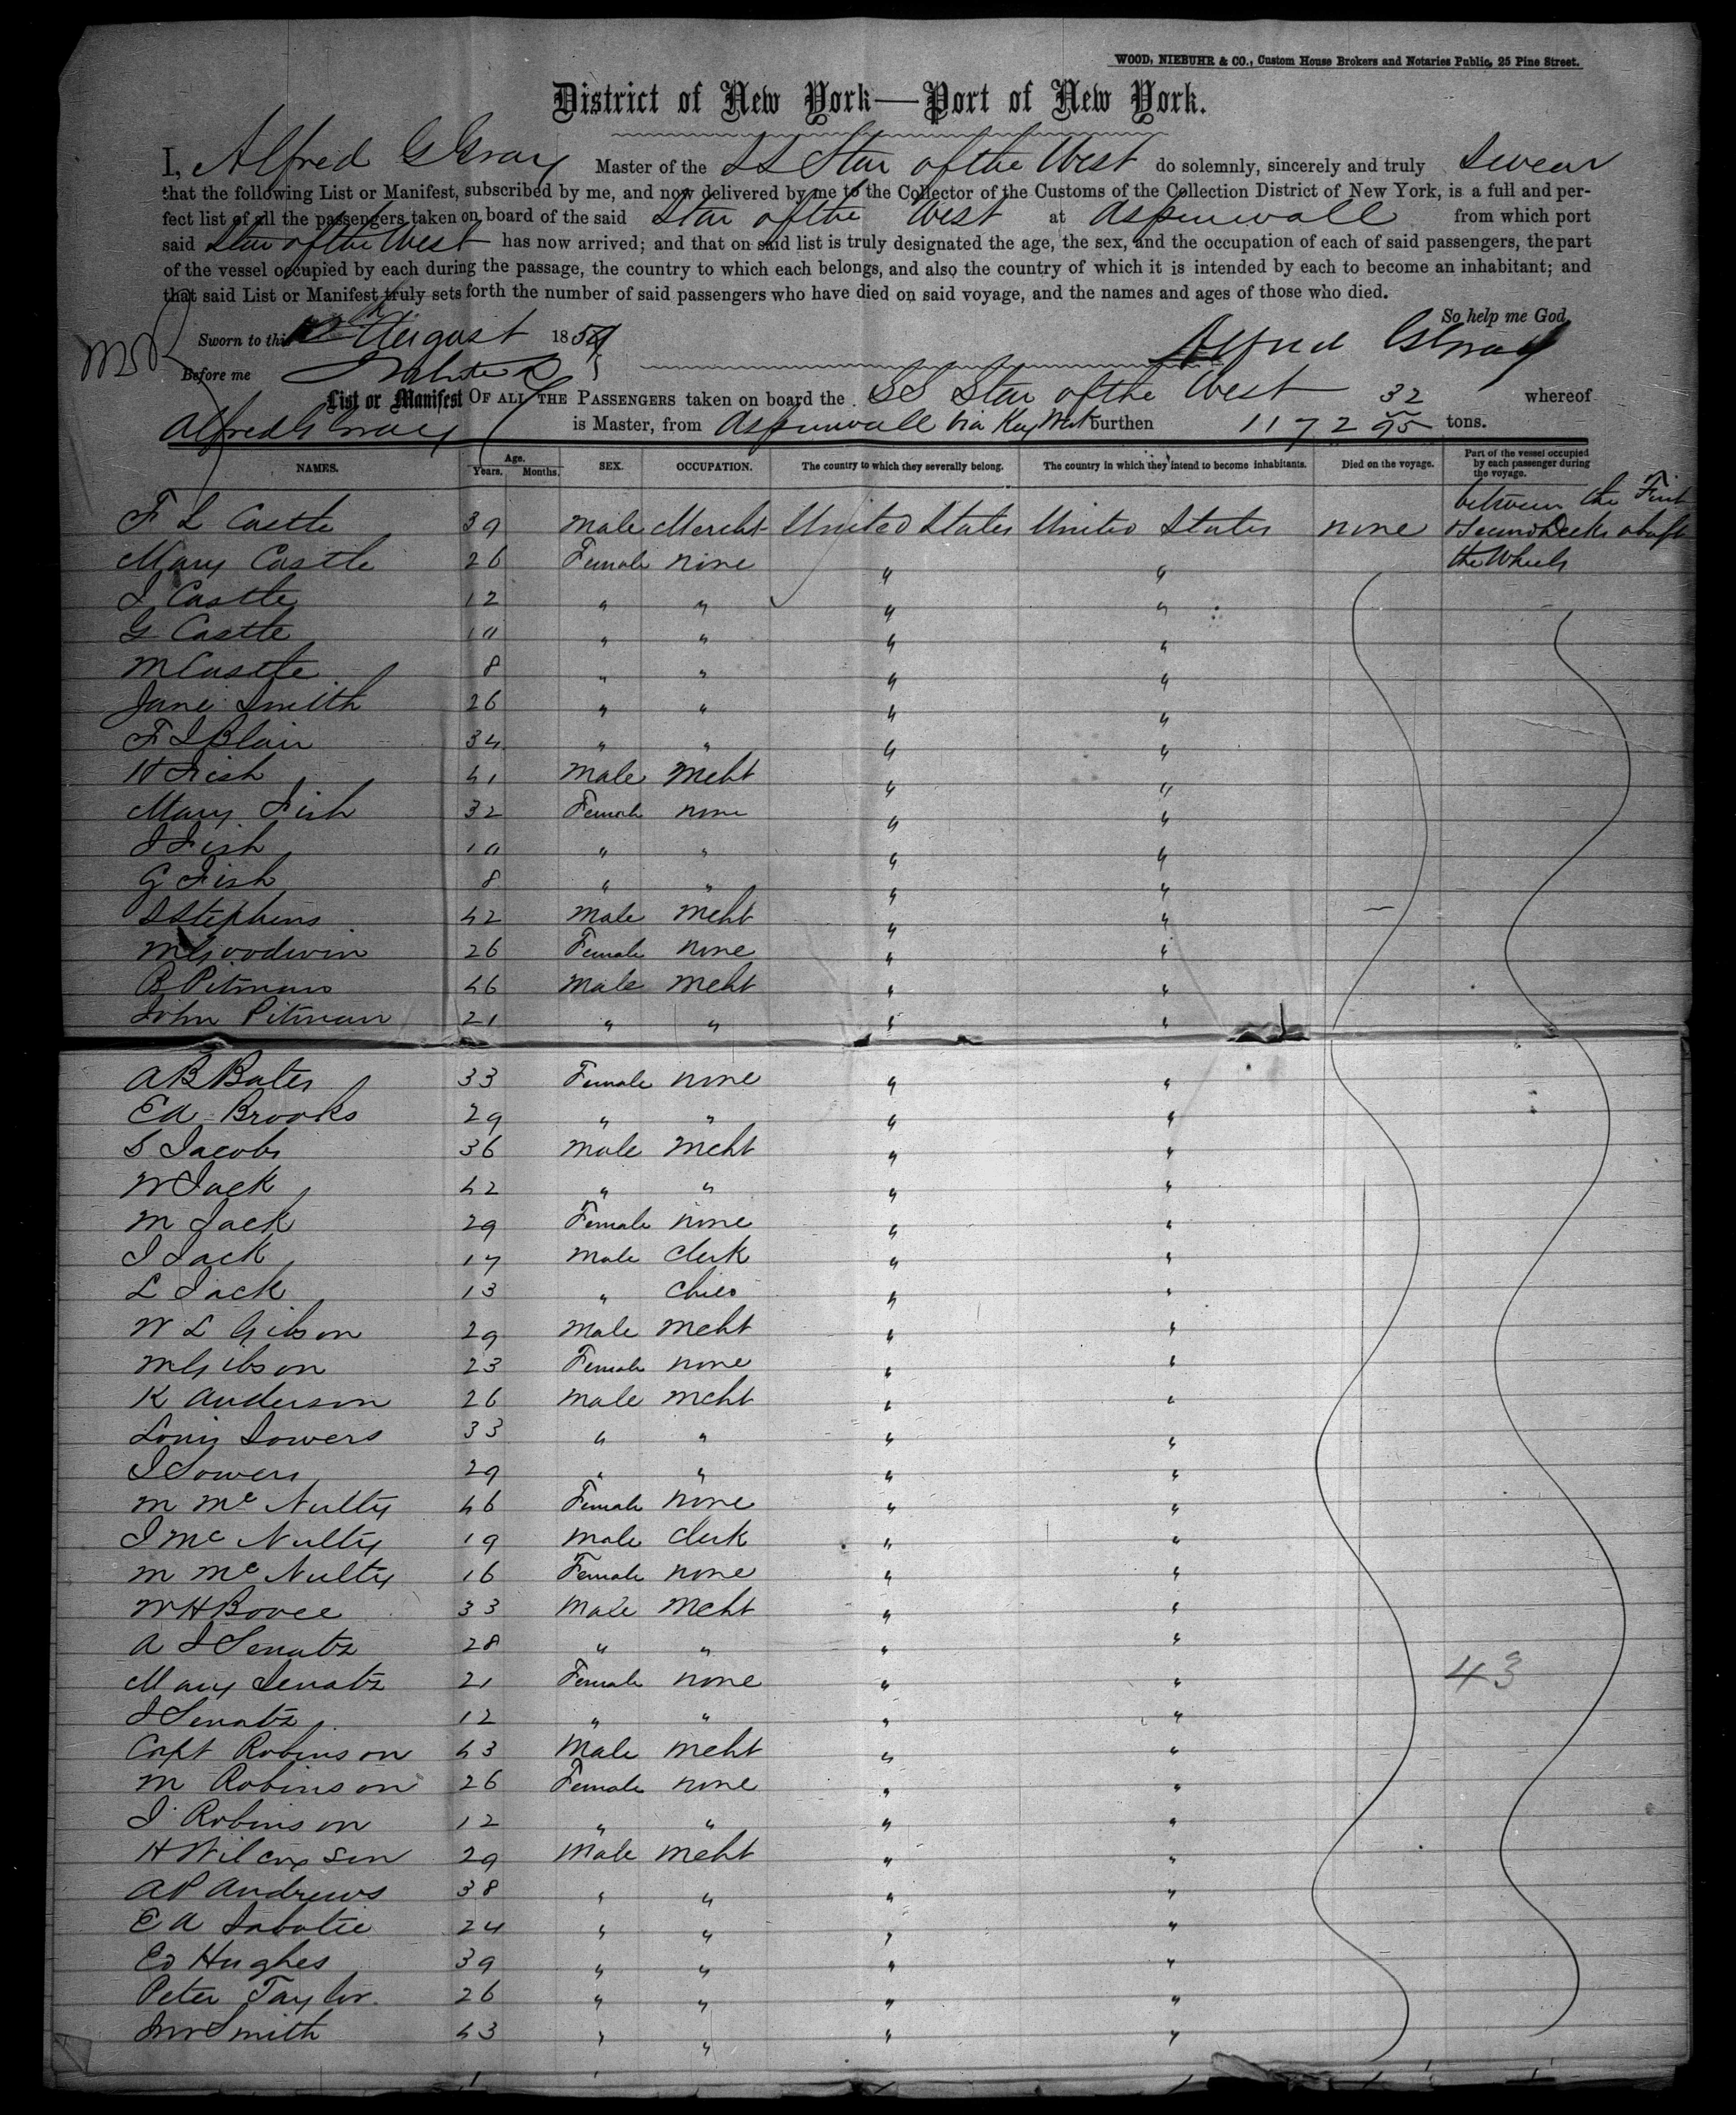 WOOD, NIEBUHR & CO., Custom House Brokers and Notaries Public, 25 Pine Street.
District of New York—Port of New York.
I, Alfred G Gray Master of the SS Star of the West do solemnly, sincerely and truly swear
that the following List or Manifest, subscribed by me, and now delivered by me to the Collector of the Customs of the Collection District of New York, is a full and per-
fect list of all the passengers taken on board of the said Star of the West at Aspinwall from which port
said Star of the West has now arrived; and that on said list is truly designated the age, the sex, and the occupation of each of said passengers, the part
of the vessel occupied by each during the passage, the country to which each belongs, and also the country of which it is intended by each to become an inhabitant; and
that said List or Manifest truly sets forth the number of said passengers who have died on said voyage, and the names and ages of those who died.
So help me God
Sworn to this 12th August 1859 Alfred G Gray
Before me
List or Manifest OF ALL THE PASSENGERS taken on board the SS Star of the West whereof
Alfred G Gray is Master, from Aspinwall via Key West burthen 1172 32/95 tons.
NAMES. Age. Years. Months. SEX. OCCUPATION. The country to which they severally belong. The country in which they intend to become inhabitants. Died on the voyage. Part of the vessel occupied by each passenger during the voyage.
F L Castle 39 Male Mercht United States United States none between the First & Second Decks abaft the Wheels
Mary Castle 26 Female none " "
I Castle 12 " " " "
G Castle 10 " " " "
M Castle 8 " " " "
Jane Smith 26 " " " "
F L Blair 34 " " " "
H Fish 41 Male Mcht " "
Mary Fish 32 Female none " "
I Fish 10 " " " "
G Fish 8 " " " "
S Stephens 42 Male Mcht " "
M Goodwin 26 Female none " "
B Pitman 46 Male Mcht " "
John Pitman 21 " " " "
A B Bates 33 Female none " "
E A Brooks 29 " " " "
S Jacobs 36 Male Mcht " "
W Jack 42 " " " "
M Jack 29 Female none " "
I Jack 17 Male Clerk " "
L Jack 13 " Child " "
W L Gibson 29 Male Mcht " "
M Gibson 23 Female none " "
K Anderson 26 Male Mcht " "
Louis Sowers 33 " " " "
I Sowers 29 " " " "
M McNulty 46 Female none " "
I McNulty 19 Male Clerk " "
M McNulty 16 Female none " "
W H Bovee 33 Male Mcht " "
A I Senatz 28 " " " "
Mary Senatz 21 Female none " "
I Senatz 12 " " " "
43
Capt Robinson 43 Male Mcht " "
M Robinson 26 Female none " "
I Robinson 12 " " " "
H Wilcoxson 29 Male Mcht " "
A P Andrews 38 " " " "
E A Sabatie 24 " " " "
Ed Hughes 39 " " " "
Peter Taylor 26 " " " "
Jno Smith 43 " " " "